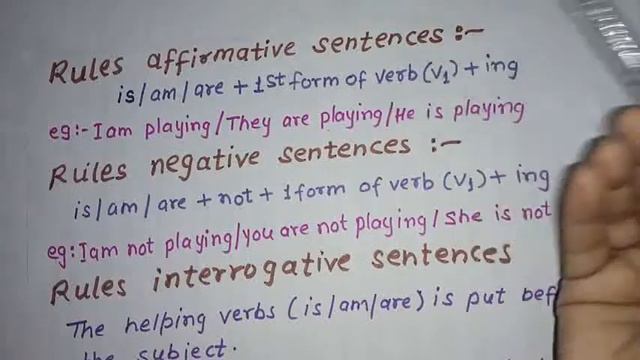 Rules affirmative sentences :-
is/am/are + 1st form of verb (V1) + ing
eg:- I am playing/They are playing/He is playing
Rules negative sentences :-
is/am/are + not + 1 form of verb (V1) + ing
eg: I am not playing/you are not playing/She is not
Rules interrogative sentences
The helping verbs (is/am/are) is put bef
the subject.